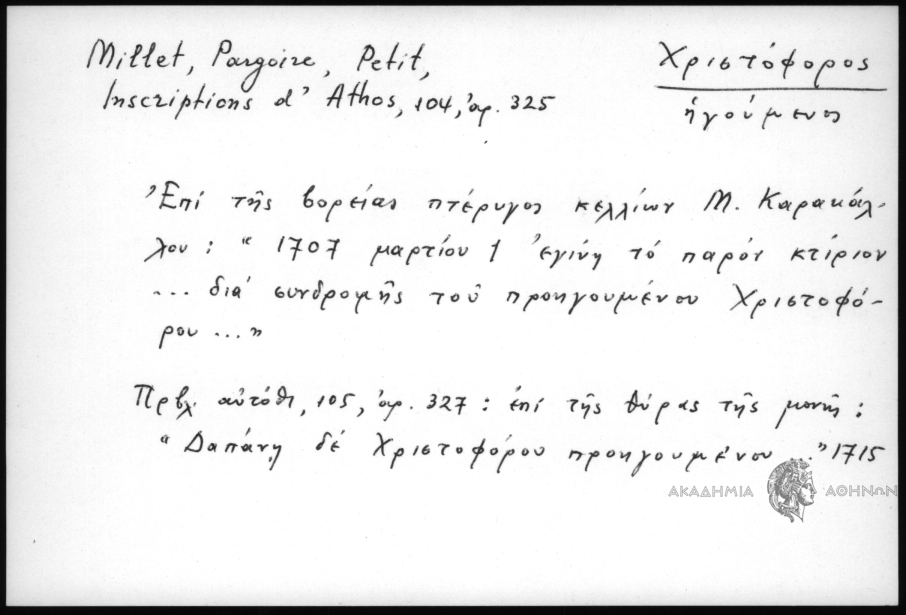 Millet, Pargoire, Petit,
Inscriptions d' Athos, 104, ἀρ. 325
Χριστόφορος
ἡγούμενος
Ἐπί τῆς βορείας πτέρυγος κελλίων Μ. Καρακάλ-
λου : " 1707 μαρτίου 1 ἐγίνη τό παρόν κτίριον
... διά συνδρομῆς τοῦ προηγουμένου Χριστοφό-
ρου ... "
Πρβλ. αὐτόθι, 105, ἀρ. 327 : ἐπί τῆς θύρας τῆς μονῆς :
" Δαπάνῃ δέ Χριστοφόρου προηγουμένου ... " 1715
ΑΚΑΔΗΜΙΑ ΑΘΗΝΩΝ